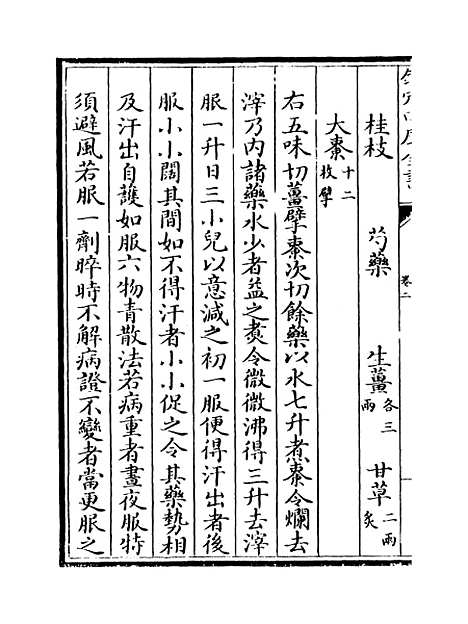 欽定四庫全書
卷二
桂枝 芍藥 生薑各三兩 甘草二兩炙
大棗十二枚擘
右五味切薑擘棗次切餘藥以水七升煮棗令爛去
滓乃内諸藥水少者益之煑令微微沸得三升去滓
服一升日三小兒以意減之初一服便得汗出者後
服小小闊其間如不得汗者小小促之令其藥勢相
及汗出自護如服六物青散法若病重者晝夜服特
須避風若服一劑晬時不解病證不變者當更服之